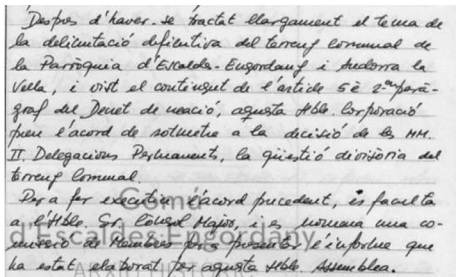 Despres d'haver-se tractat llargament el tema de
la delimitació definitiva del terreny comunal de
la Parròquia d'Escaldes-Engordany i Andorra la
Vella, i vist el contingut de l'article 5è 2on parà-
graf del Decret de creació, aquesta Hble. Corporació
pren l'acord de sotmetre a la decisió de les MM.
II. Delegacions Permanents, la qüestió divisòria del
terreny comunal.
Per a fer executiu l'acord precedent, es faculta
a l'Hble. Sr. Consol Major, i es nomena una co-
missió de Membres per a presentar l'informe que
ha estat elaborat per aquesta Hble. Assemblea.
Comú
d'Escaldes Engordany